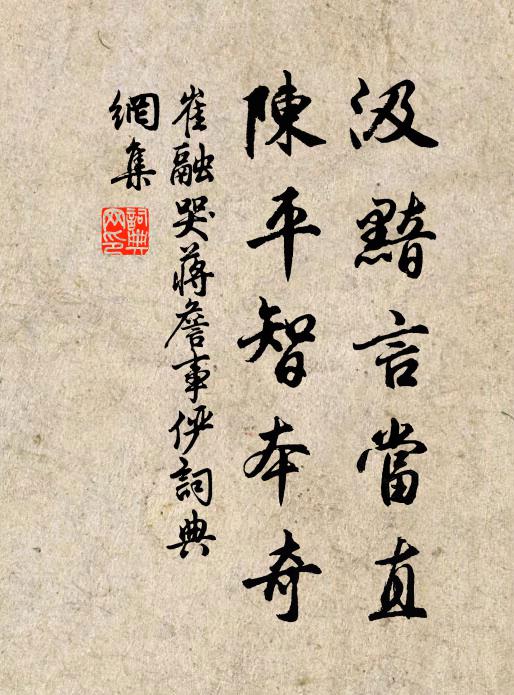 汲黯言當直
陳平智本奇
崔融哭蔣詹事俨詞典
網集
詞典
网印